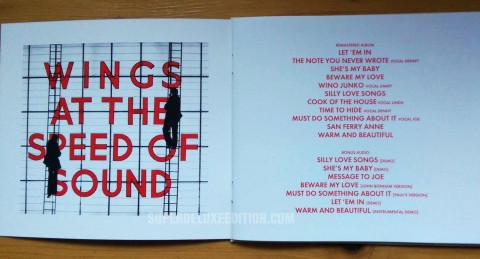 WINGS
AT THE
SPEED OF
SOUND
SUPERDELUXEEDITION.COM
REMASTERED ALBUM
LET 'EM IN
THE NOTE YOU NEVER WROTE VOCAL DENNY
SHE'S MY BABY
BEWARE MY LOVE
WINO JUNKO VOCAL JIMMY
SILLY LOVE SONGS
COOK OF THE HOUSE VOCAL LINDA
TIME TO HIDE VOCAL DENNY
MUST DO SOMETHING ABOUT IT VOCAL JOE
SAN FERRY ANNE
WARM AND BEAUTIFUL
BONUS AUDIO
SILLY LOVE SONGS [DEMO]
SHE'S MY BABY [DEMO]
MESSAGE TO JOE
BEWARE MY LOVE [JOHN BONHAM VERSION]
MUST DO SOMETHING ABOUT IT [PAUL'S VERSION]
LET 'EM IN [DEMO]
WARM AND BEAUTIFUL [INSTRUMENTAL DEMO]